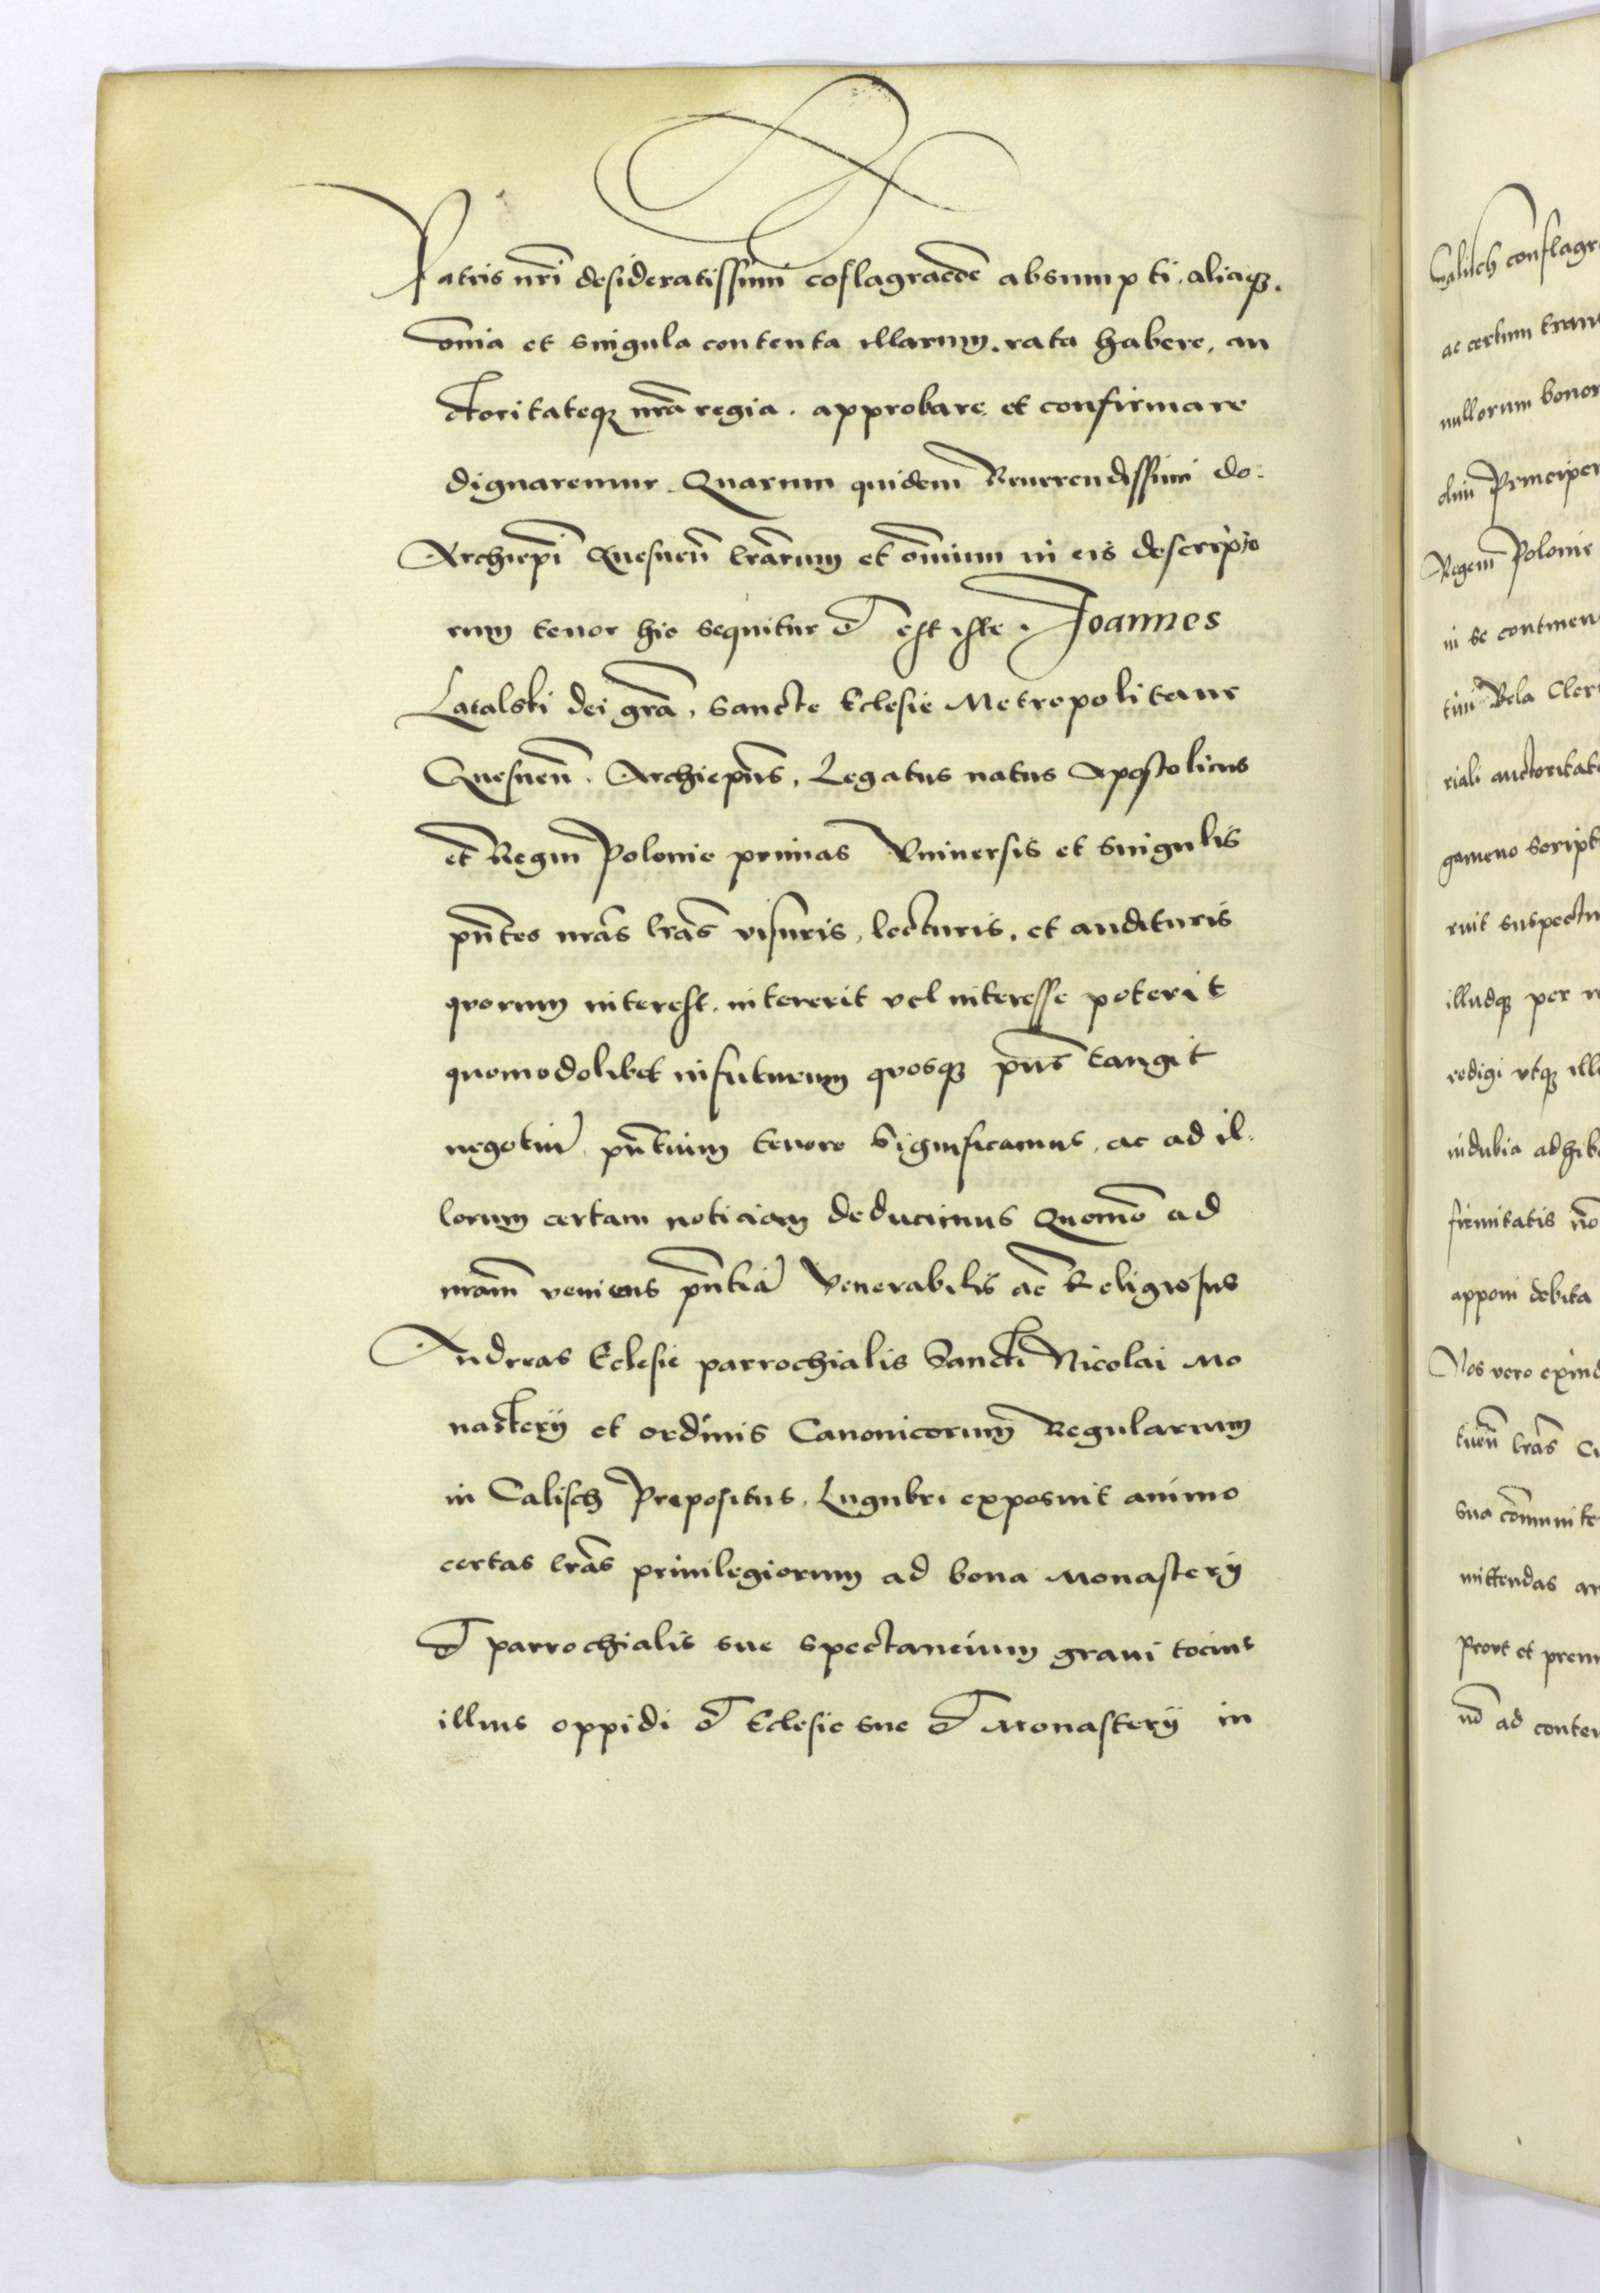 Patris nri desideratissimi coflagracōe absumpti, aliaqз.
ōnia et singula contenta illarum. rata habere, au
ctoritateqз nrā regia. approbare et confirmare
dignaremur. Quarum quidem Reuerendissimi do:
Archiepi Gnesneñ lrārum et ōmium in eis descripto
rum tenor hic sequitur et est iste. Joannes
Latalski dei grā, Sancte Eclesie Metropolitane
Gnesneñ. Archiepūs, Legatus natus Apostolicus
et Regni Polonie primas Vniuersis et singulis
pñtes nrās lrās visuris, lecturis, et audituris
quorum interest. intererit vel interesse poterit
quomodolibet infuturum quosqз pñs tangit
negotiū pñtium tenore Significamus, ac ad il:
lorum certam noticiam deducimus Quomō ad
nrām veniens pñtiā Venerabilis ac Religiosus
Andreas Eclesie parrochialis Sancti Nicolai Mo
nasterij et ordinis Canonicorum Regularium
in Calisch Prepositus, Lugubri exposuit animo
certas lrās priuilegiorum ad bona Monasterij
et parrochialis sue spectancium graui tocius
illius oppidi et Eclesie sue et Monasterij in
Calisch conflagr
ac certum tran
nullorum bonor
Principem
Regem Polonie
in se continen
Bela Cler
riali auctoritate
gameno script
ruit suspectu
illudqз per
redigi vtqз ill
indubia adhib
firmitatis nō
apponi debita
Nos vero exind
lrās
sua cōmunite
mittendas
Prout et prem
ad conten